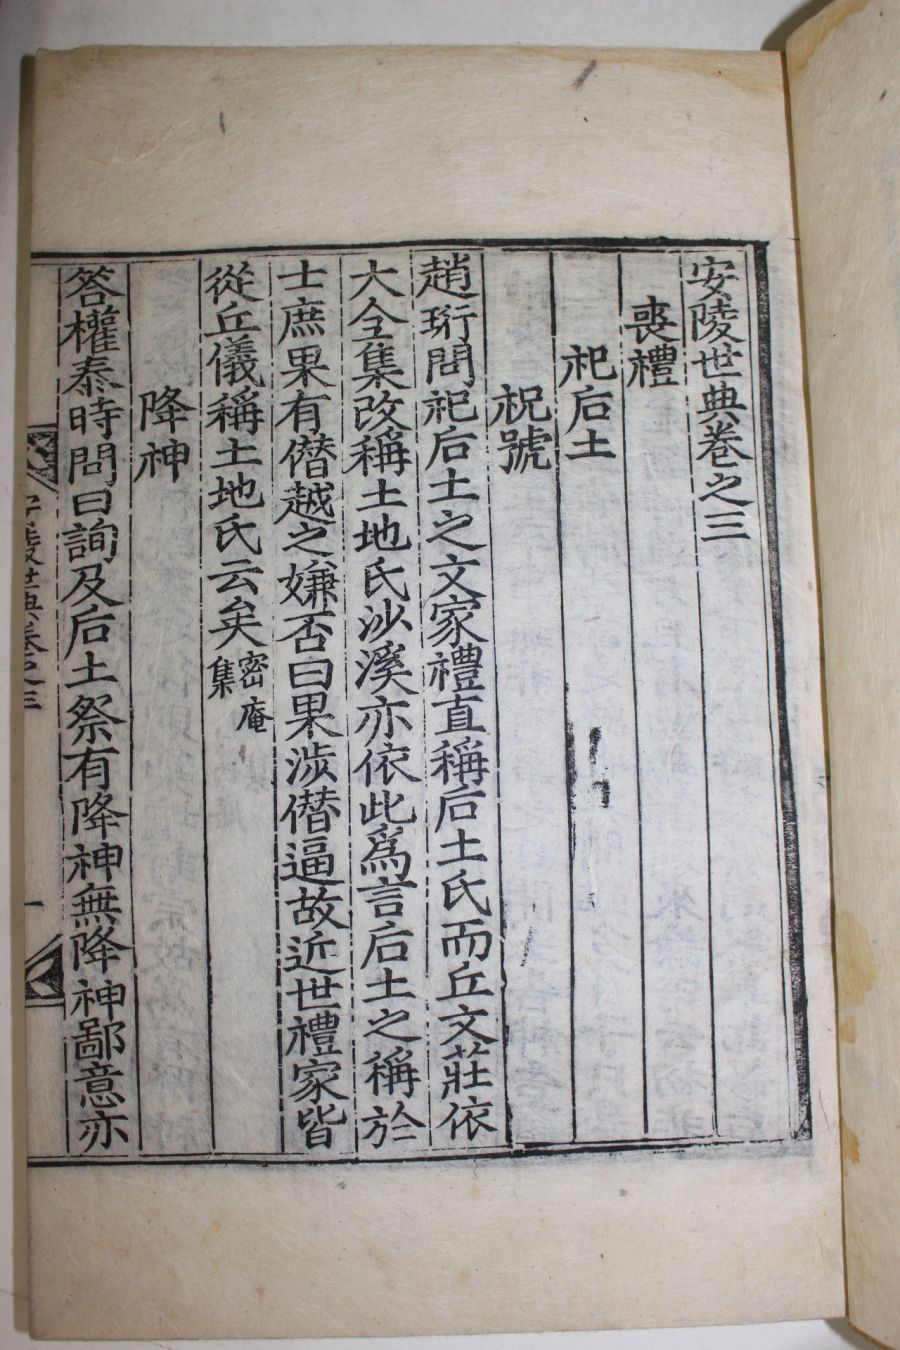 安陵世典卷之三
喪禮
祀后土
祝號
趙珩問祀后土之文家禮直稱后土氏而丘文莊依
大全集改稱土地氏沙溪亦依此爲言后土之稱於
士庶果有僣越之嫌否曰果涉僣逼故近世禮家皆
從丘儀稱土地氏云矣密庵集
降神
答權泰時問曰詢及后土祭有降神無降神鄙意亦
安陵世典卷之三
一